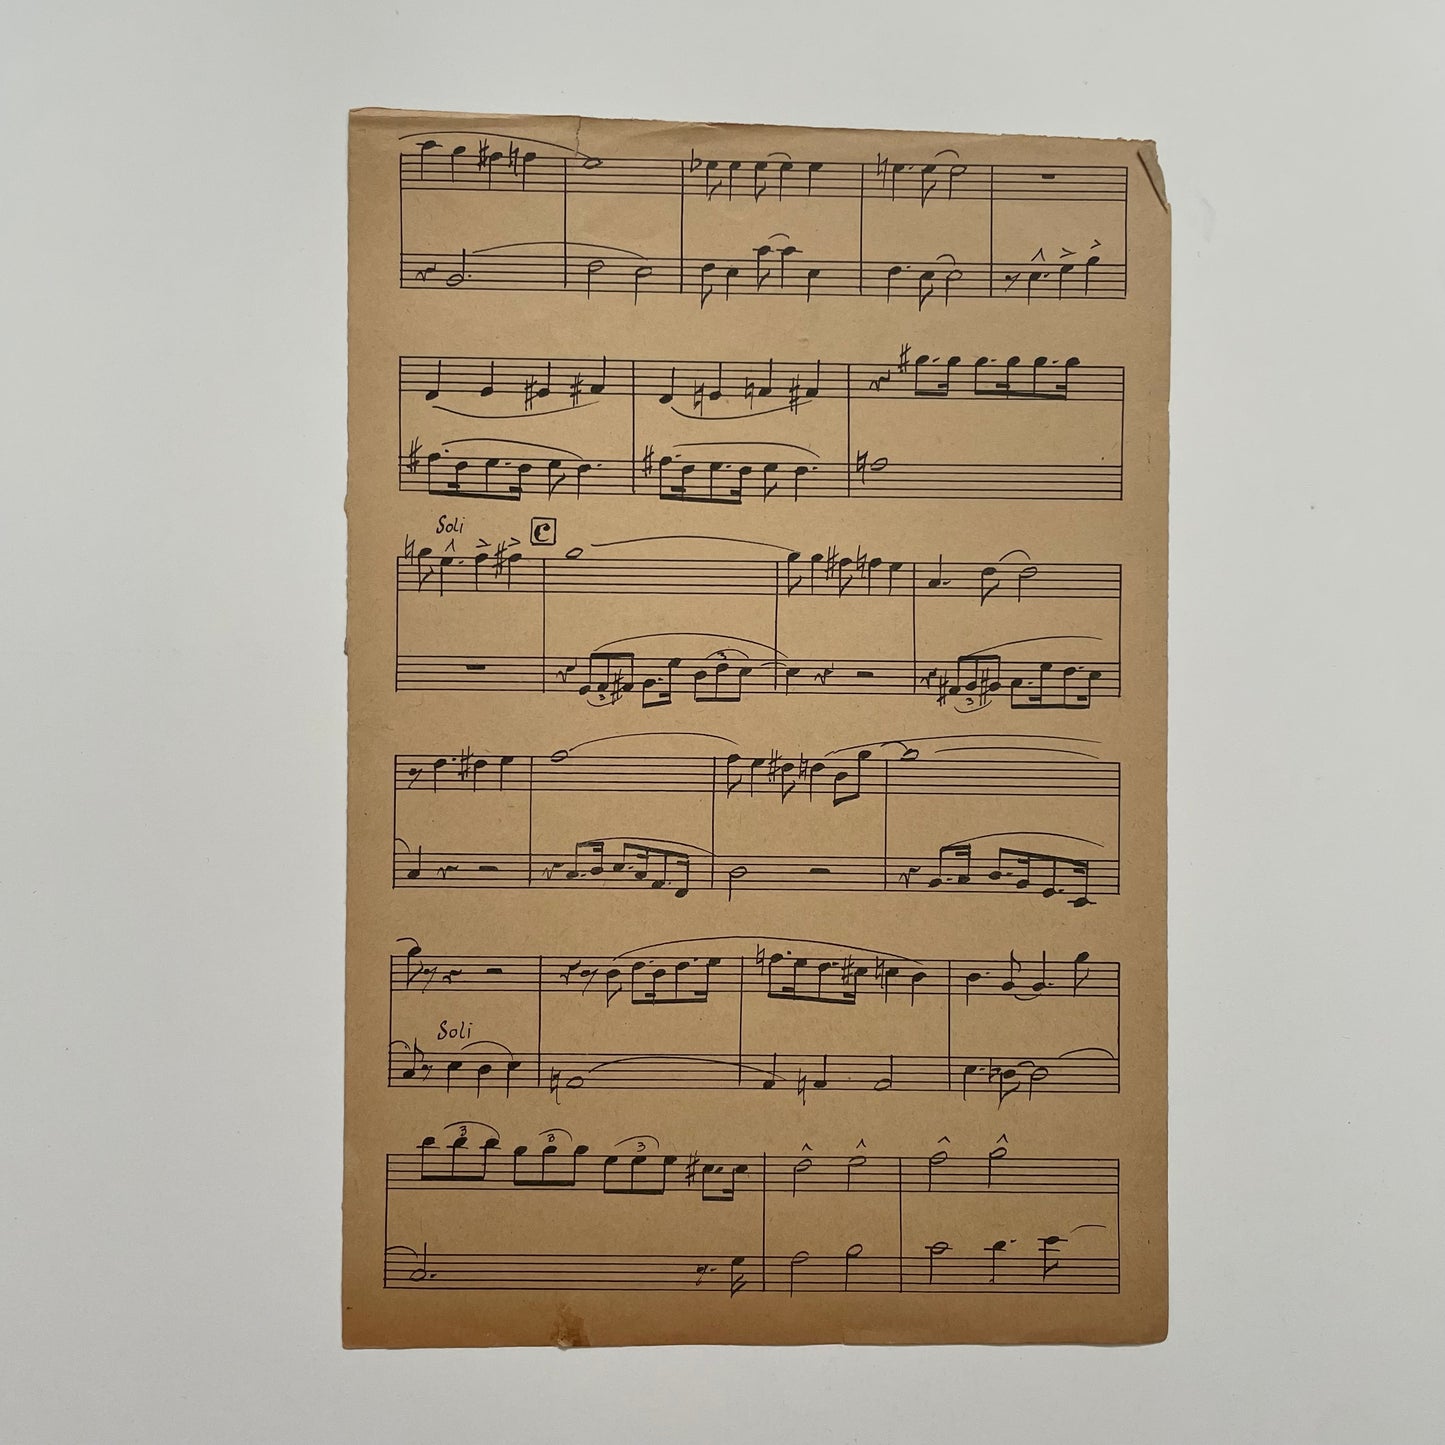 Soli C
3 3 3
Soli
3 3 3